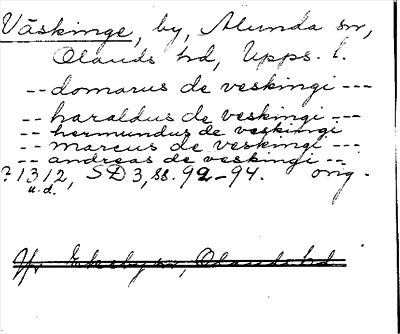 Väskinge, by, Alunda sn,
Olands hd, Upps. l.
-- domarus de veskingi ---
-- haraldus de veskingi ---
-- hermundus de veskingi
-- marcus de veskingi ---
-- andreas de veskingi ---
? 1312, SD 3, ss. 92-94. orig.
u.d.
Jfr Ekeby sn, Olands hd